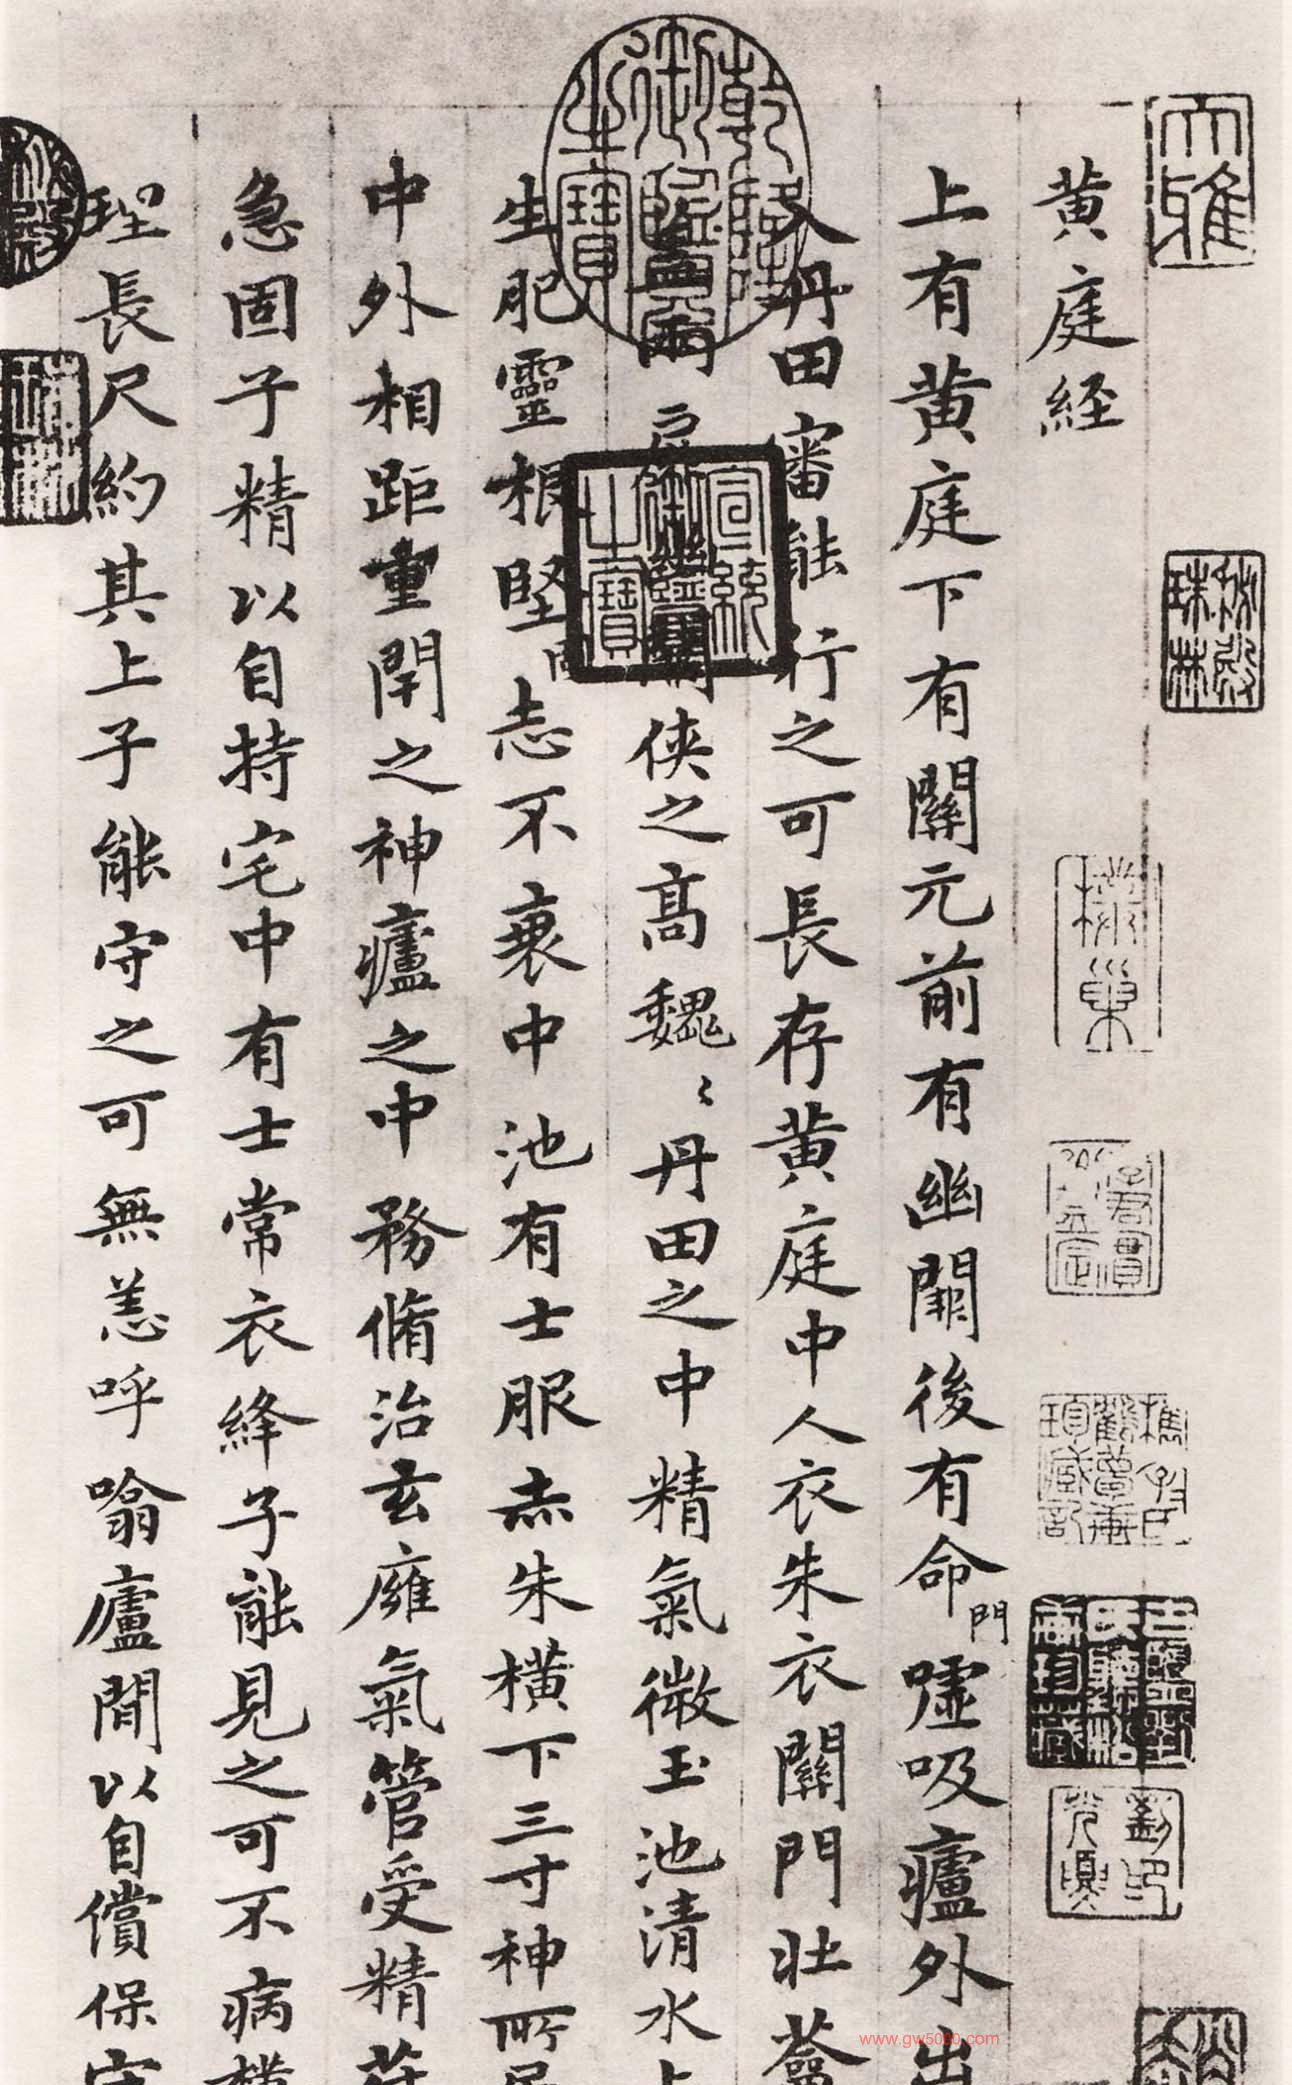 黄庭経
上有黄庭下有關元前有幽闕後有命門嘘吸廬外出
入丹田審能行之可長存黄庭中人衣朱衣關門壮蘥
兩扉關侠之高魏〻丹田之中精氣微玉池清水上
生肥靈根堅固志不衰中池有士服赤朱横下三寸神所居
中外相距重閇之神廬之中務脩治玄廱氣管受精符
急固子精以自持宅中有士常衣絳子能見之可不病横
理長尺約其上子能守之可無恙呼噏廬間以自償保守
乾隆御覽之寶
宣統御覽之寶
大雅
秘殿珠林
www.gw5000.com